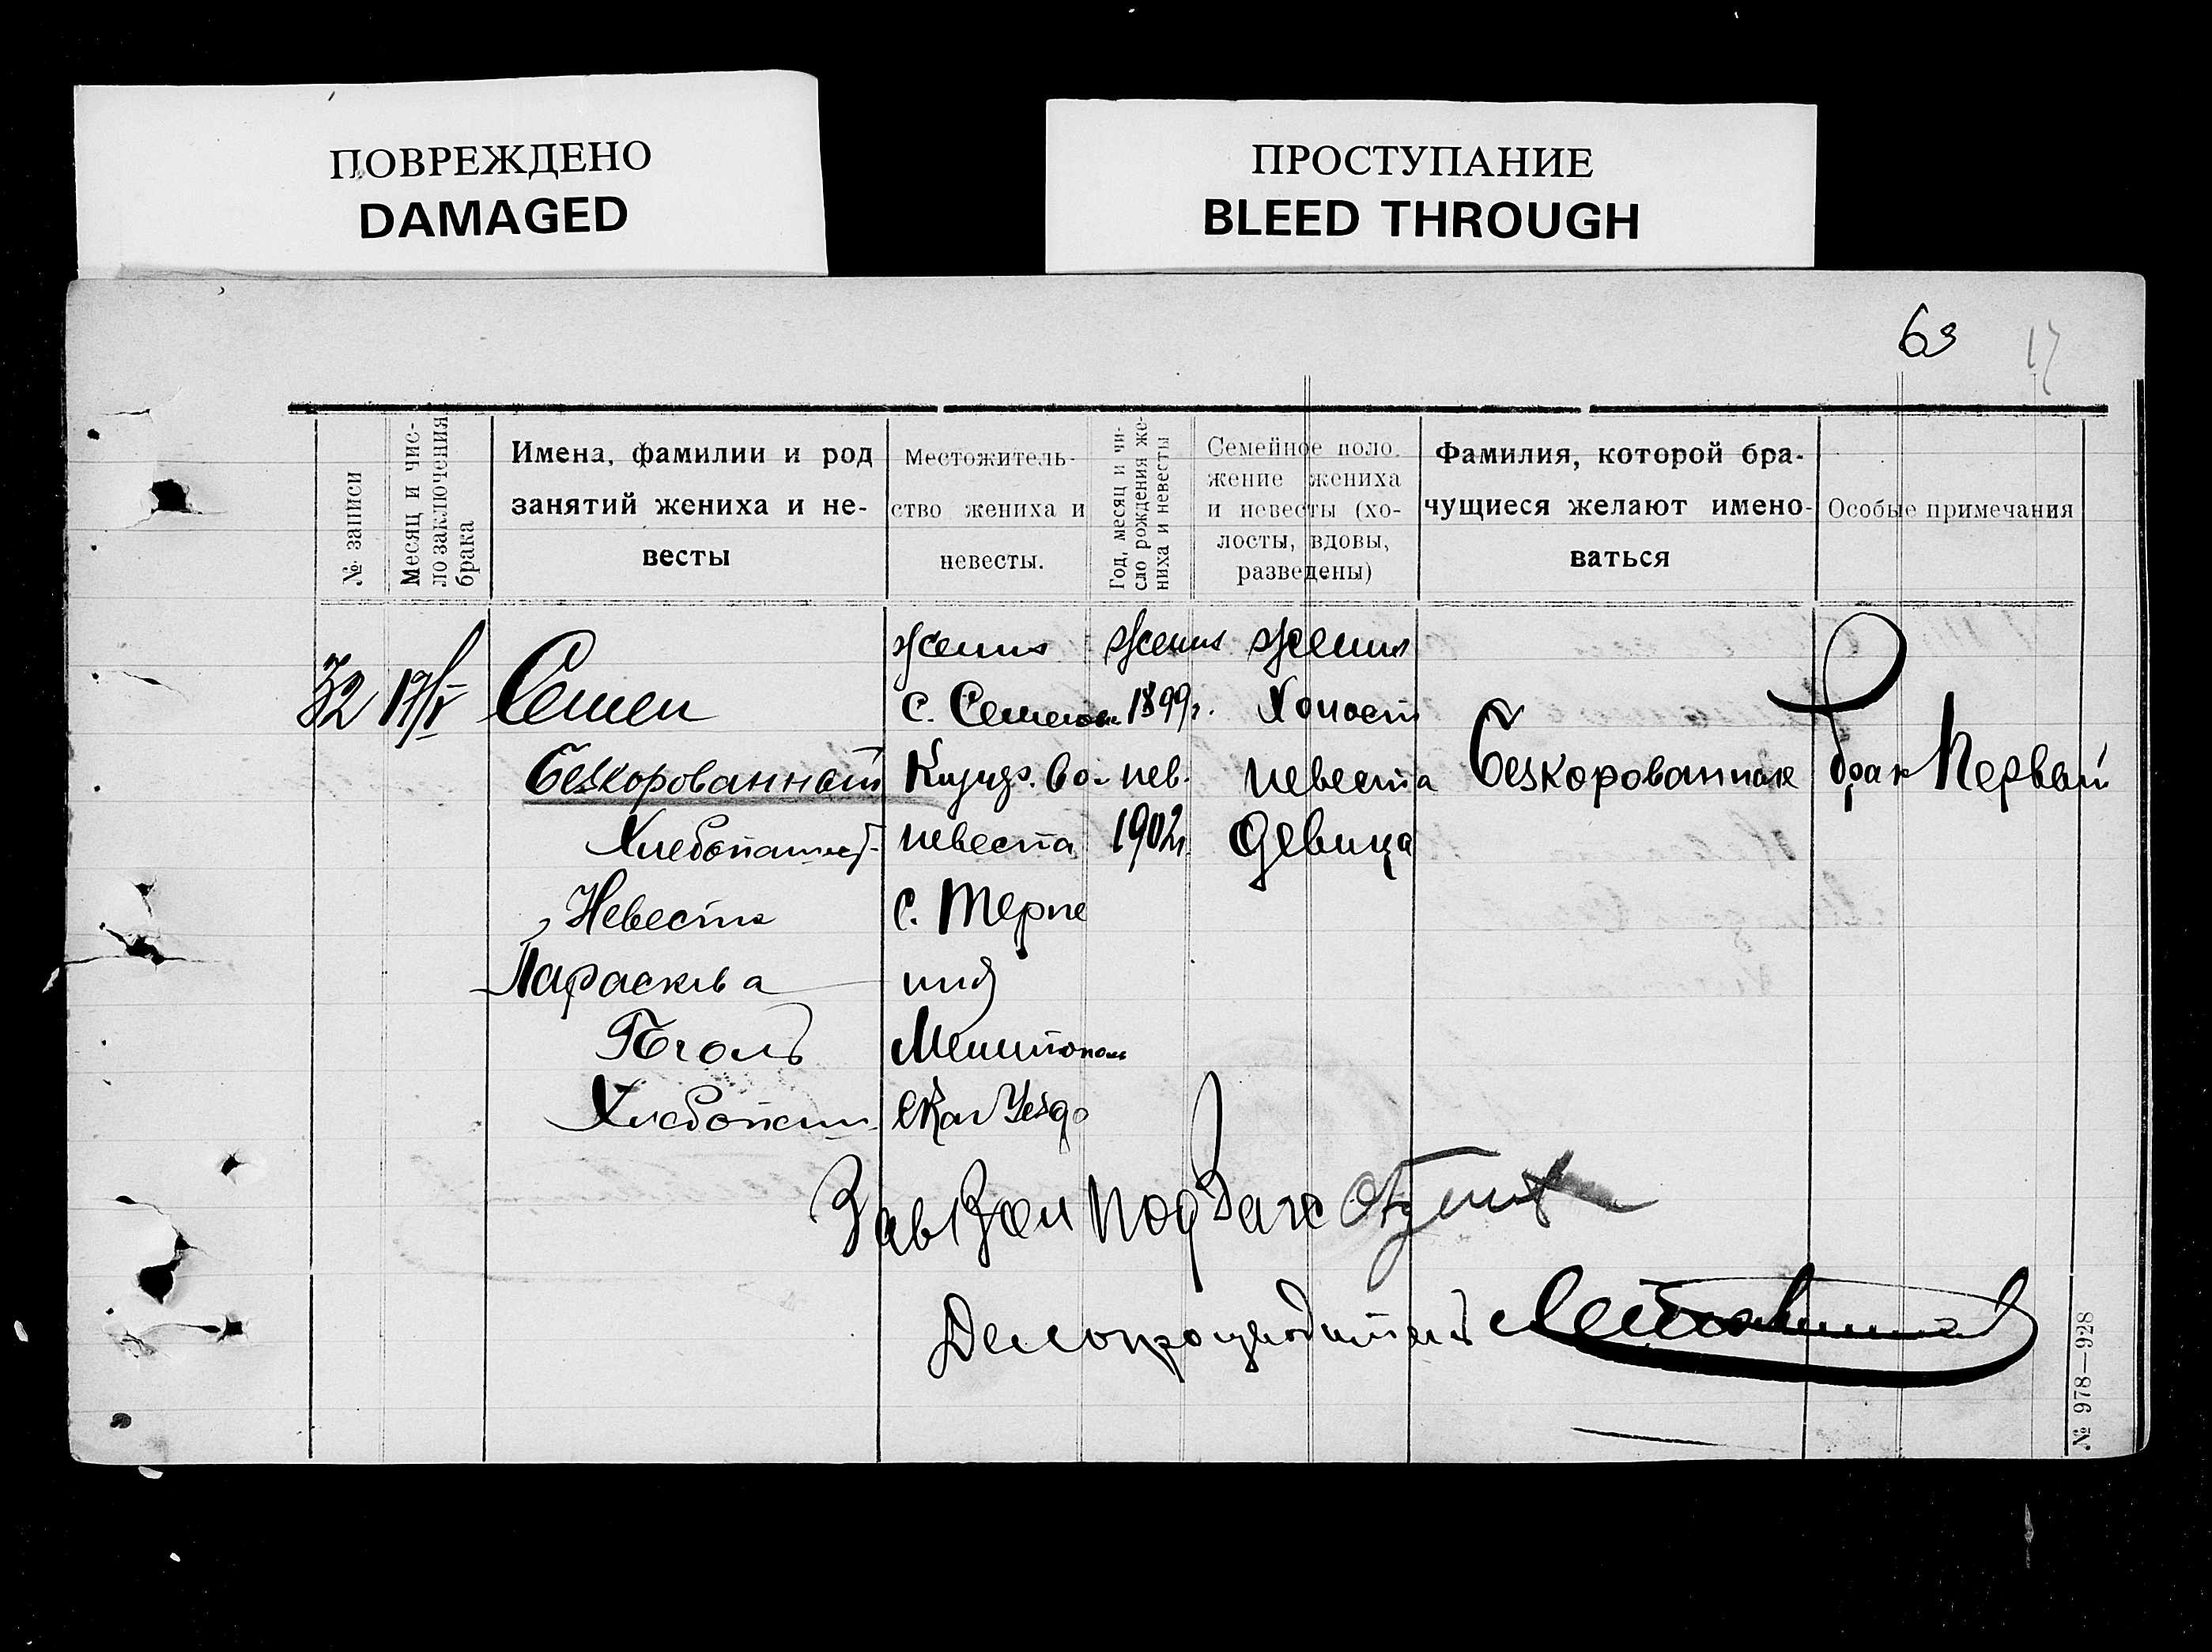 ПОВРЕЖДЕНО
DAMAGED
ПРОСТУПАНИЕ
BLEED THROUGH
63
17
№ записи
Месяц и чис-
ло заключения
брака
Имена, фамилии и род
занятий жениха и не-
весты
Местожитель-
ство жениха и
невесты.
Год, месяц и чи-
сло рождения же-
ниха и невесты
Семейное поло-
жение жениха
и невесты (хо-
лосты, вдовы,
разведены)
Фамилия, которой бра-
чущиеся желают имено-
ваться
Особые примечания
32
Семен
Безкорованный
Хлебопашец
Невеста
Параскева
Хлебопаш
жених
с.
невеста
с. Терпе
ния
Мелитополь
ского Уезда
жених
1899г.
нев.
1902г.
жених
Холост
невеста
девица
Безкорованная
брак Первый
Делопроизводитель
№ 978—928